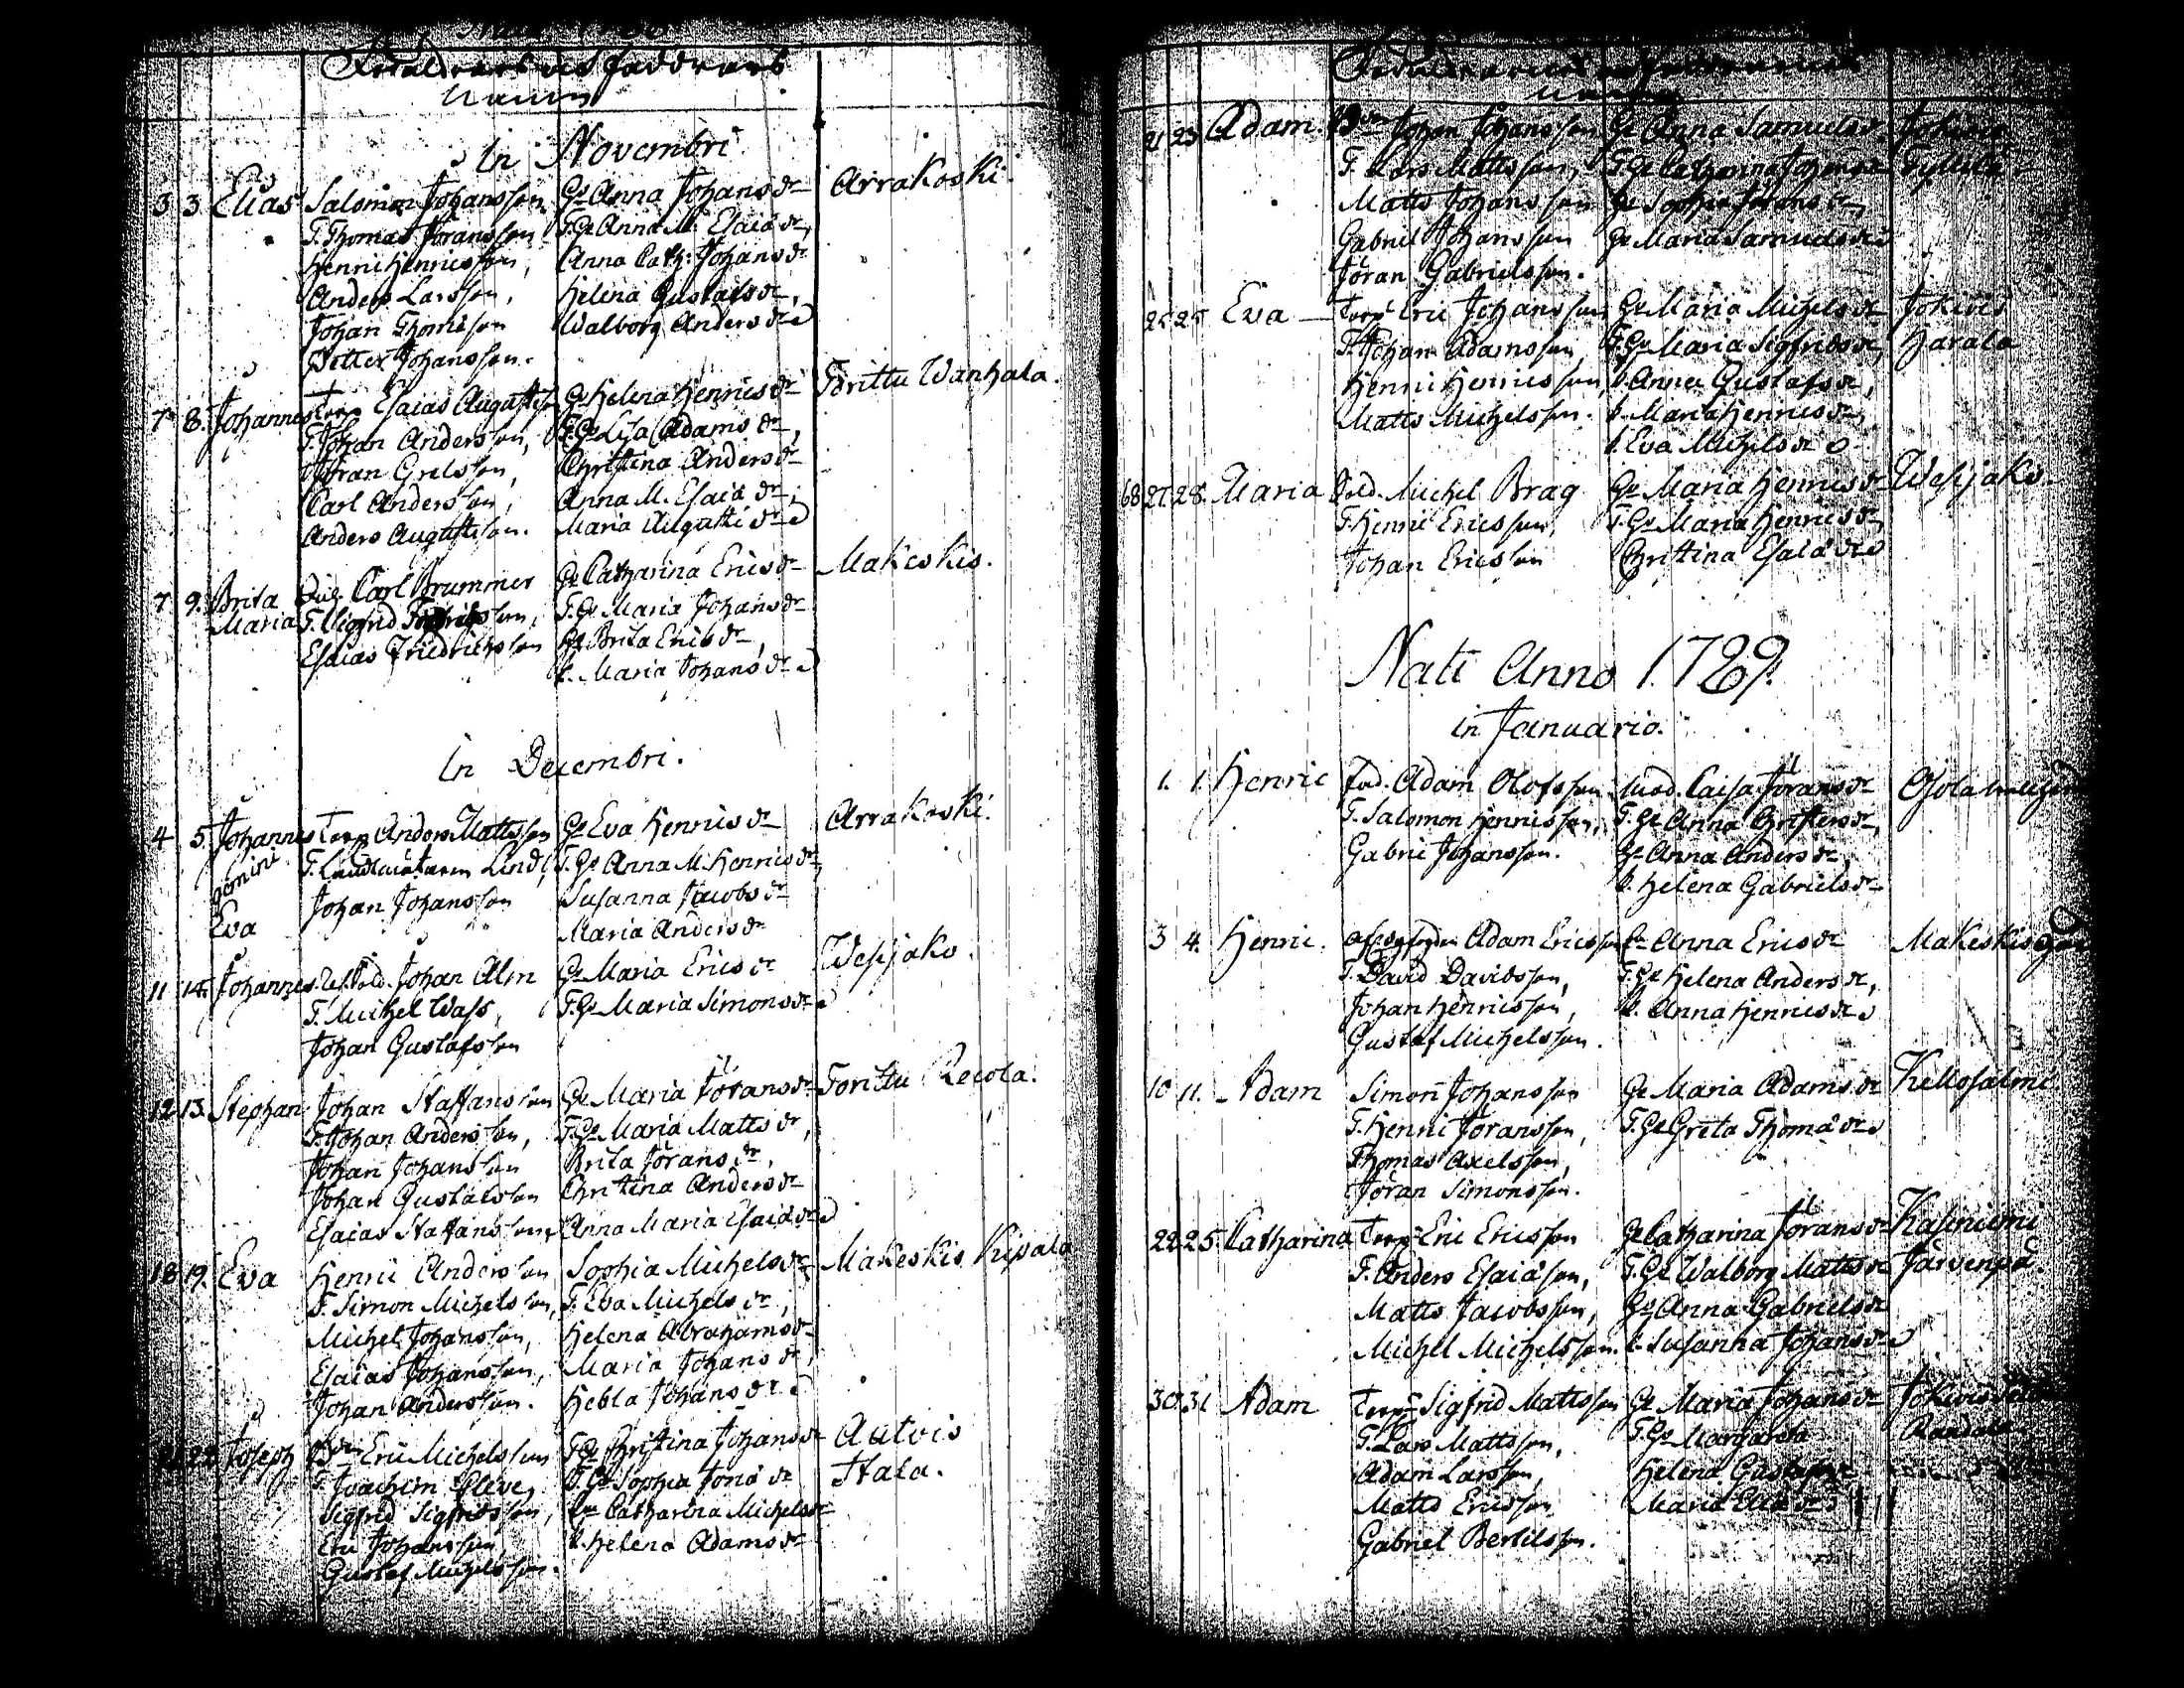 Föräldrarnes och Faddrarnes
Namn
In Novembri
3 3 Elias Salomon Johansson Hu Anna Johansdr Arrakoski.
T. Thomas Jöransson T. Hu Anna M. Esaiædr,
Henric Henricsson, Anna Cath: Johansdr
Anders Larsson, Helena Gustafsdr,
Johan Thomasson Walborg Andersdr
Petter Johansson.
7 8. Johannes Torp Esaias Augustisson Hu Helena Henricsdr Torittu Wanhala.
T. Johan Andersson, T. Hu Lisa Adamsdr,
Jöran Grelsson, Christina Andersdr
Carl Andersson, Anna M. Esaiædr,
Anders Augustisson. Maria Augustidr
7 9. Brita Carl Brummer Hu Catharina Ericsdr Makeskis.
Maria T. Sigfrid T. Hu Maria Johansdr
Esaias Friedrichsson Hu Brita Ericsdr,
p. Maria Johansdr
In Decembri.
4 5. Johannes Torp Anders Mattsson Hu Eva Henricsdr Arrakoski.
gemini T. Lindl, T. Hu Anna M. Henricsdr
Johan Johansson Susanna Jacobsdr
Eva Maria Andersdr
11 14. Johannes Johan Alm Hu Maria Ericsdr Wesijako.
T. Michel Wass, T. Hu Maria Simonsdr
Johan Gustafsson
12 13. Stephan Johan Staffansson Hu Maria Jöransdr Torittu Recola.
T. Johan Andersson, T. Hu Maria Mattsdr,
Johan Johansson Brita Jöransdr,
Johan Gustafsson Christina Andersdr
Esaias Staffansson, Anna Maria Esaiædr
18 19. Eva Henric Andersson Sophia Michelsdr Makeskis
T. Simon Michelsson, T. Eva Michelsdr,
Michel Johansson, Helena Abrahamsdr
Esaias Johansson, Maria Johansdr,
Johan Andersson. Hebla Johansdr
22 Joseph Eric Michelsson Christina Johansdr Autois
T. Joachim Gleve, T. Hu Sophia Jonædr Itala.
Sigfrid Sigfridsson, Catharina Michelsdr
Eric Johansson p. Helena Adamsdr
Gustaf Michelsson.
Föräldrarnes och Faddrarnes
21 23 Adam Johan Johansson Hu Anna Samuelsdr Jokiois
T. Lars Mattsson, T. Hu Catharina Johansdr
Matts Johansson Hu Sophia Johansdr
Gabriel Johansson Hu Maria Samuelsdr
Jöran Gabrielsson.
25 25 Eva Torp Eric Johansson Hu Maria Michelsdr Jokiois
T. Johan Adamsson, T. Hu Maria Sigfridsdr, Harala
Henric Henricsson, p. Anna Gustafsdr,
Matts Michelsson. p. Maria Henricsdr,
p. Eva Michelsdr
68 27. 28. Maria Sold. Michel Brag Hu Maria Henricsdr Wesijako.
T. Henric Ericsson, T. Hu Maria Henricsdr
Johan Ericsson Christina Esaiædr
Nati Anno 1789.
in Januario.
1. 1. Henric Adam Olofsson Caisa Jöransdr
T. Salomon Henricsson, T. Hu Anna Christersdr,
Gabriel Johansson. Hu Anna Andersdr,
p. Helena Gabrielsdr
3 4. Henric. Adam Ericsson Anna Ericsdr Makeskis
T. David Davidsson, T. Hu Helena Andersdr,
Johan Henricsson, p. Anna Henricsdr
Gustaf Michelsson.
10 11. Adam Simon Johansson Hu Maria Adamsdr Kellosalmi
T. Henric Jöransson, T. Hu Greta Thomædr
Thomas Axelsson,
Jöran Simonsson.
22 25 Catharina Torp Eric Ericsson Hu Catharina Jöransdr Kasiniemi
T. Anders Esaiæson, T. Hu Walborg Mattsdr Järvenpä.
Matts Jacobsson, Hu Anna Gabrielsdr
Michel Michelsson. p. Susanna Johansdr
30. 31 Adam Torp Sigfrid Mattsson Hu Maria Johansdr Jokiois
T. Lars Mattsson, T. Hu Margareta
Adam Larsson, Helena Gustafsdr
Matts Ericsson Maria
Gabriel Bertilsson.